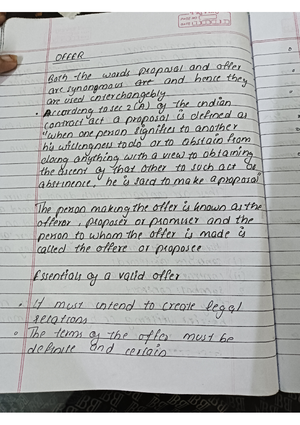 OFFER
Both the words proposal and offer
are synongmous are and hence they
are used interchangebly
According to sec 2(a) of the indian
contract act a proposal is defined as
"when one person signifies to another
his willingness to do or to abstain from
doing anything with a view to obtaining
the ascent of that other to such act or
abstinence," he is said to make a proposal
The person making the offer is known as the
offeror, proposer or promiser and the
person to whom the offer is made is
called the offere or proposee
Essentials of a valid offer
It must intend to create legal
relations
The terms of the offer must be
definite and certain